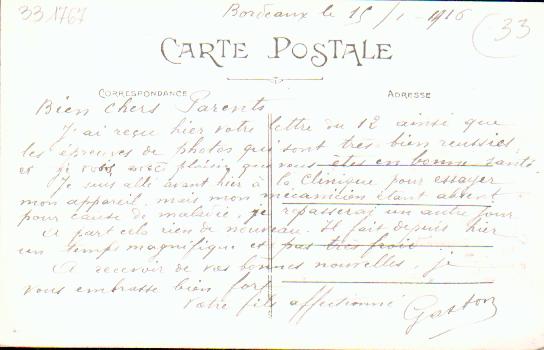 33 1767
Bordeaux le 15/1-1916
33
CARTE POSTALE
CORRESPONDANCE
ADRESSE
Bien chers Parents
J'ai reçue hier votre lettre du 12 ainsi que
les épreuves de photos qui sont très bien reussies,
et je vois avec plaisir que vous êtes en bonne santé
Je suis allé avant hier à la clinique pour essayer
mon appareil, mais mon mécanicien étant absent
pour cause de maladie, je repasserai un autre jour.
A part cela rien de nouveau. Il fait depuis hier
un temps magnifique et pas très froid
A recevoir de vos bonnes nouvelles, je
vous embrasse bien fort
Votre fils affectionné Gaston